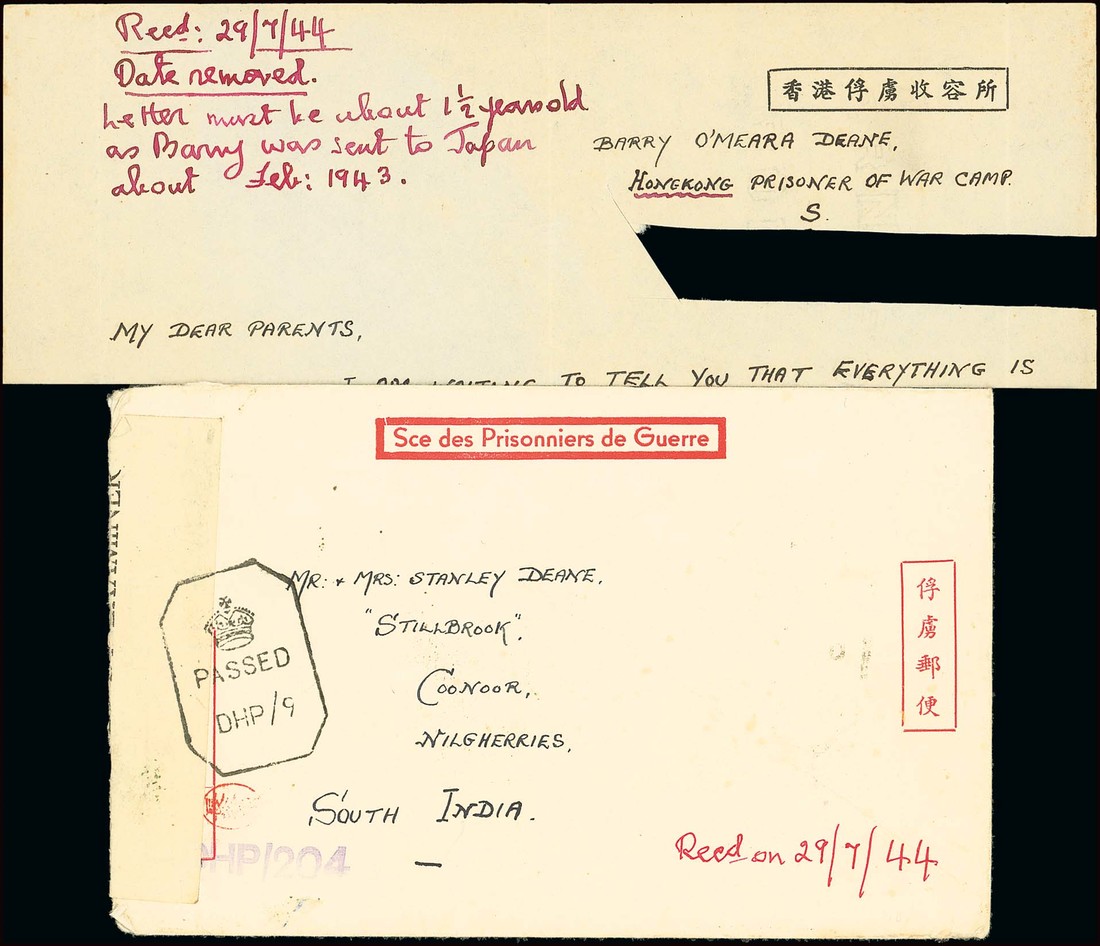 Recd: 29/7/44
Date removed.
Letter must be about 1½ years old
as Barry was sent to Japan
about Feb: 1943.
香港俘虜收容所
BARRY O'MEARA DEANE,
HONGKONG PRISONER OF WAR CAMP.
S.
MY DEAR PARENTS,
I AM WRITING TO TELL YOU THAT EVERYTHING IS
Sce des Prisonniers de Guerre
EXAMINER
MR: + MRS: STANLEY DEANE.
"STILLBROOK".
COONOOR,
NILGHERRIES,
SOUTH INDIA.
PASSED
DHP/9
DHP/204
俘虜郵便
Recd on 29/7/44